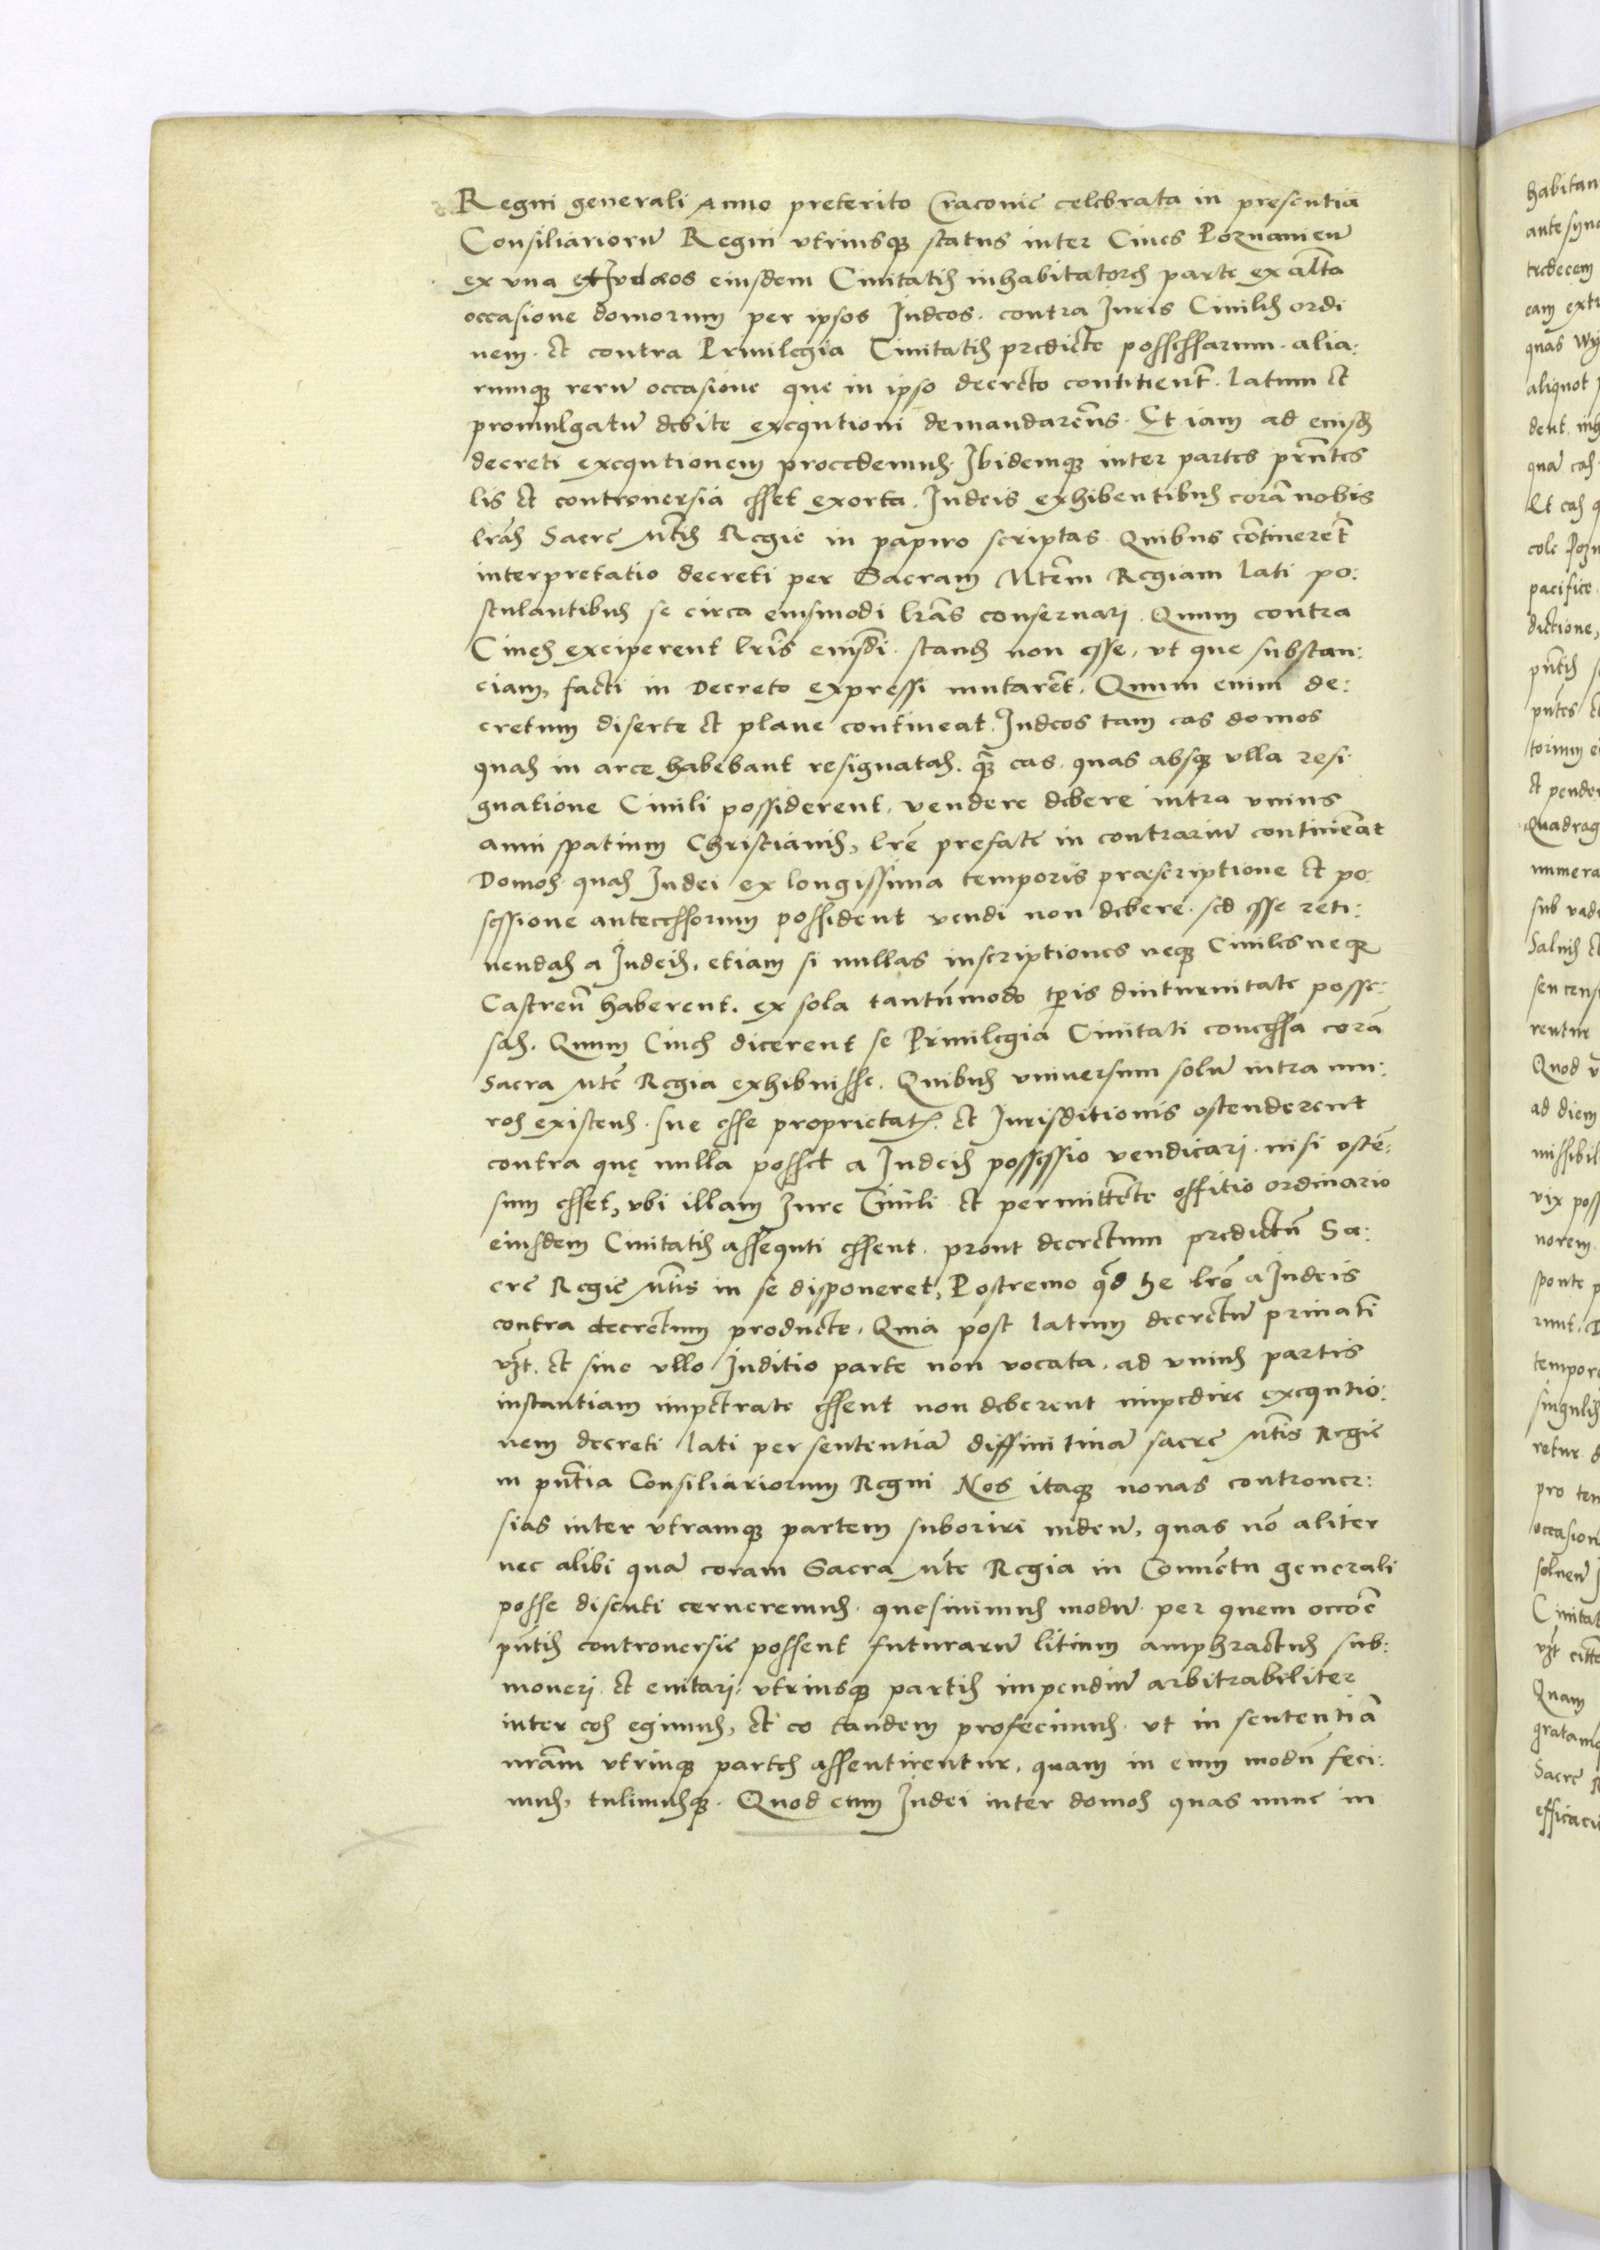 Regni generali Anno preterito Craconie celebrata in presentia
Consiliariorū Regni vtriusqꝫ status inter Ciues Poznanien̄
ex vna et Iudæos eiusdem Ciuitatis inhabitatores parte ex altā
occasione domorum per ipsos Iudeos. contra Iuris Ciuilis ordi
nem. et contra Priuilegia Ciuitatis predicte possessarum. alia:
rumqꝫ rerū occasione que in ipso decreto contitient̄. latum et
promulgatū debite exequtioni demandarem̄s. Et iam ad eiusd̄
decreti exequtionem procedemus. Ibidemqꝫ inter partes pn̄tes
lis et controuersia esset exorta. Iudeis exhibentibus corā nobis
lrās Sacre Mt̄is Regie in papiro scriptas. Quibus cōtineret̄
interpretatio decreti per Sacram Mtēm Regiam lati po:
stulantibus se circa eiusmodi lrās conseruari. Quum contra
Ciues exciperent lrīs eiusdī. stand̄ non esse, vt que substan:
ciam, facti in Decreto expressi mutarēt. Quum enim de:
cretum diserte et plane contineat. Iudeos tam eas domos
quas in arce habebant resignatas. qꝫ̄ eas. quas absqꝫ vlla resi
gnatione Ciuili possiderent, vendere debere intra vnius
anni spatium Christianis, lrē prefate in contrariū contineāt
Domos quas Iudei ex longissima temporis præscriptione et po:
sessione antecessorum possident vendi non debere. sed esse reti:
nendas a Iudeis, etiam si nullas inscriptiones neqꝫ Ciuiles neqꝫ
Castren̄ haberent. ex sola tantūmodo tp̄is diuturnitate posse:
sas. Quum Ciues dicerent se Priuilegia Ciuitati concessa corā
Sacra Mtē Regia exhibuisse. Quibus vniuersum solū intra mu:
ros existens. sue esse proprietatꝭ. et Iurisditionis ostenderent
contra quę nulla posset a Iudeis possessio vendicari. nisi ostē:
sum esset, vbi illam Iure Ciuili et permittēte offitio ordinario
eiusdem Ciuitatis assequti essent. prout decretum predictū Sa:
cre Regie Mt̄is in se disponeret, Postremo qd̄ he lrē a Iudeis
contra decretum producte. Quia post latum decretū priuatī
vꝫt. et sine vllo Iuditio parte non vocata. ad vnius partis
instantiam impetrate essent non deberent impedire exequtio:
nem decreti lati per sententiā diffinitiuā sacre Mt̄is Regie
in pn̄tia Consiliariorum Regni Nos itaqꝫ nouas controuer:
sias inter vtramqꝫ partem suboriri viden̄, quas nō aliter
nec alibi quā coram Sacra Mtē Regia in Conuētu generali
posse discuti cerneremus. quesiuimus modū per quem occōe
pn̄tis controuersie possent futurarū litium amphractus sub:
moueri et euitari, vtriusqꝫ partis impendiū arbitrabiliter
inter eos egimus, et eo tandem profecimus. vt in sententiā
nrām vtrinqꝫ partes assentirentur, quam in eum modū feci:
mus, tulimusqꝫ. Quod cum Iudei inter domos quas nunc in